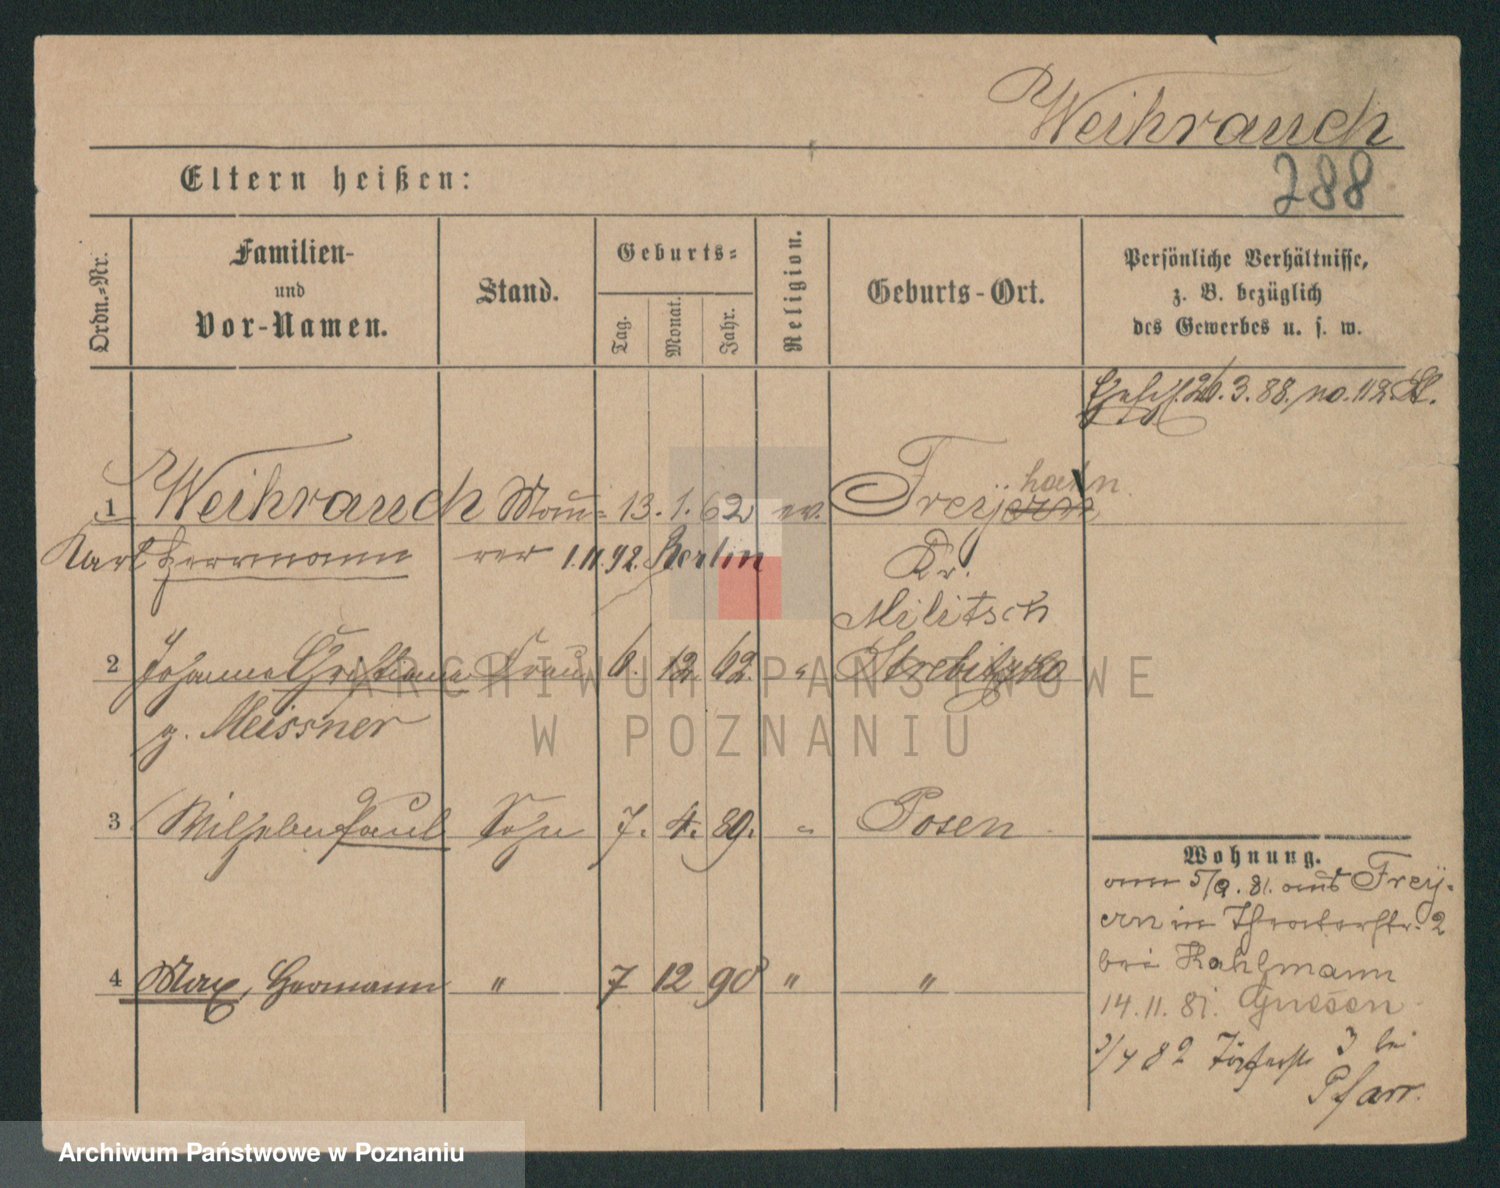 Weihrauch
288
Eltern heißen:
Ordn.-Nr.
Familien-
und
Vor-Namen.
Stand.
Geburts-
Tag.
Monat.
Jahr.
Religion.
Geburts-Ort.
Persönliche Verhältnisse,
z. B. bezüglich
des Gewerbes u. s. w.
26.3.88. no. 112
1 Weihrauch Mau- 13. 1. 62 ev. Freyern hahn
Karl Herrmann rer 1.11.92. Berlin Kr.
Militsch
2 Johanna Christiana Frau 6. 12. 62. " Strebitzko
g. Meissner
3 Wilhelm Paul Sohn 7. 4. 89. " Posen
4 Max, Hermann " 7 12 90 " "
Wohnung.
am 5/9. 81. aus Frey-
ern in Theaterstr. 2
bei Kahlmann
14.11.81. Gnesen
82 3 bei
Pfarr.
ARCHIWUM PAŃSTWOWE
W POZNANIU
Archiwum Państwowe w Poznaniu